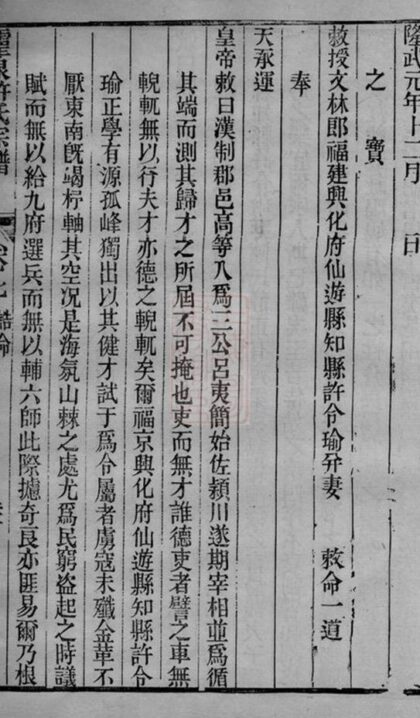 隆武元年十二月　日
之寶
敕授文林郎福建興化府仙遊縣知縣許令瑜幷妻　敕命一道
奉
天承運
皇帝敕曰漢制郡邑高等入爲三公呂夷簡始佐潁川遂期宰相並爲循
其端而測其歸才之所屆不可掩也吏而無才誰德吏者譬之車無
輗軏無以行夫才亦德之輗軏矣爾福京興化府仙遊縣知縣許令
瑜正學有源孤峰獨出以其健才試于爲令屬者虜寇未殲金革不
厭東南旣竭杼軸其空況是海氛山棘之處尤爲民窮盜起之時議
賦而無以給九府選兵而無以輔六師此際攄奇良亦匪易爾乃根
許氏宗譜　卷　誥命